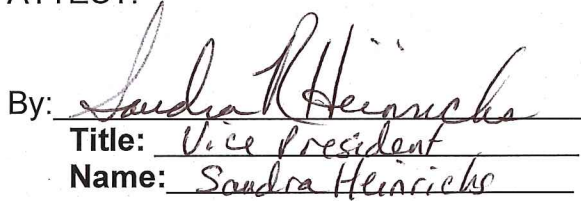 ATTEST:
By: Sandra R Heinrichs
Title: Vice President
Name: Sandra Heinrichs